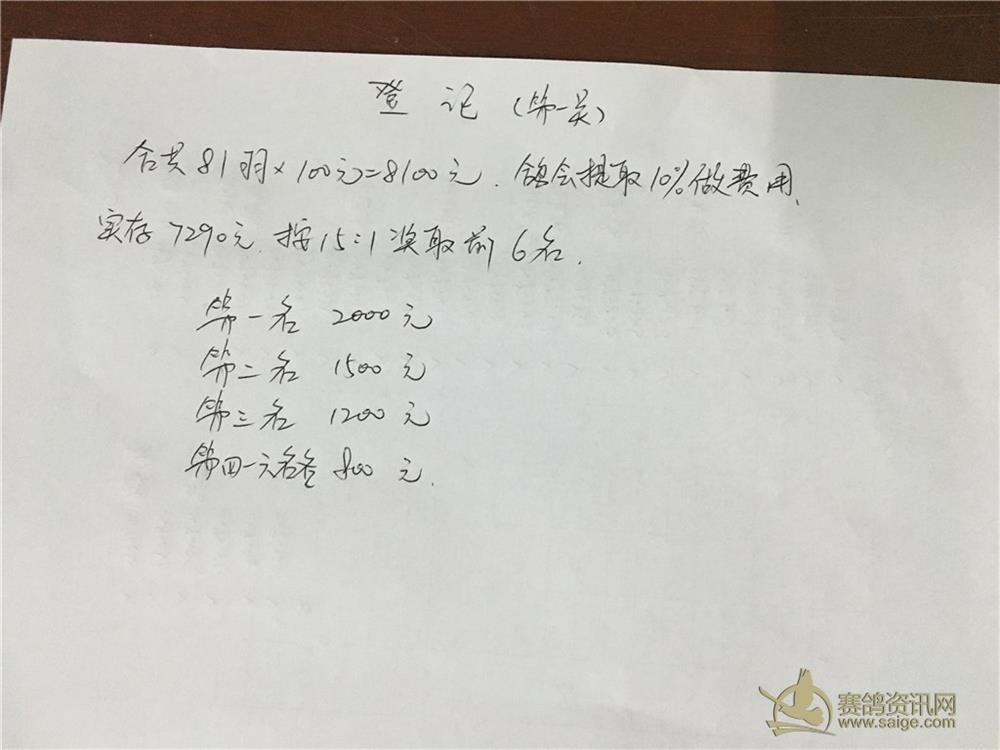 登记(第一关)
合共81羽×100元=8100元.鸽会提取10%做费用、
实存7290元.按15:1奖取前6名.
第一名 2000元
第二名 1500元
第三名 1200元
第四一六名各 800元.
赛鸽资讯网
www.saige.com